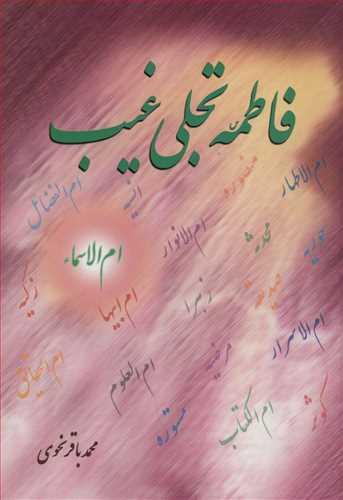 فاطمه تجلی غیب
ام الاطهار
منصوره
انسیه
ام الفضائل
حوریه
محدثه
ام الانوار
ام الاسماء
صدیقه
زهرا
ام ابیها
زکیه
ام الاسرار
مرضیه
ام العلوم
ام الحقائق
کوثر
ام الکتاب
مستوره
محمد باقر نحوی